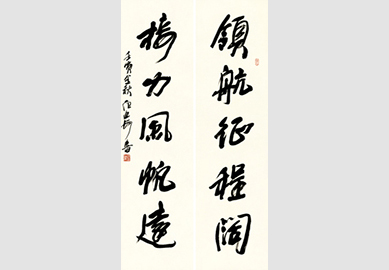 領航征程闊
接力風帆遠
壬寅金秋